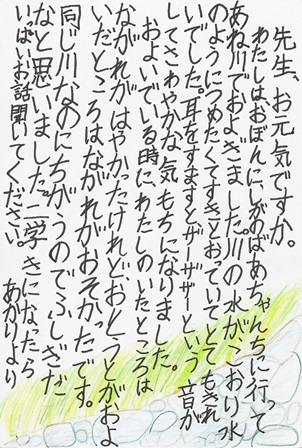 先生、お元気ですか。
わたしはおぼんに、しがのばあちゃんちに行って
あね川でおよぎました。川の水が、こおり水
のようにつめたくてすきとおっていてとてもきれ
いでした。耳をすますとザーザーという音が
してさわやかな気もちになりました。
およいでいる時に、わたしのいたところは
ながれがはやかったけれどおとうとがおよ
いだところはながれがおそかったです。
同じ川なのにちがうのでふしぎだ
なと思いました。二学きになったら
いっぱいお話聞いてください。
あかりより